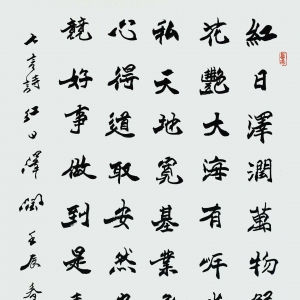 紅日澤潤萬物
花艷大海有
私天地寬基業
心得道取安然
競好事做到是
詩紅日澤潤壬辰春